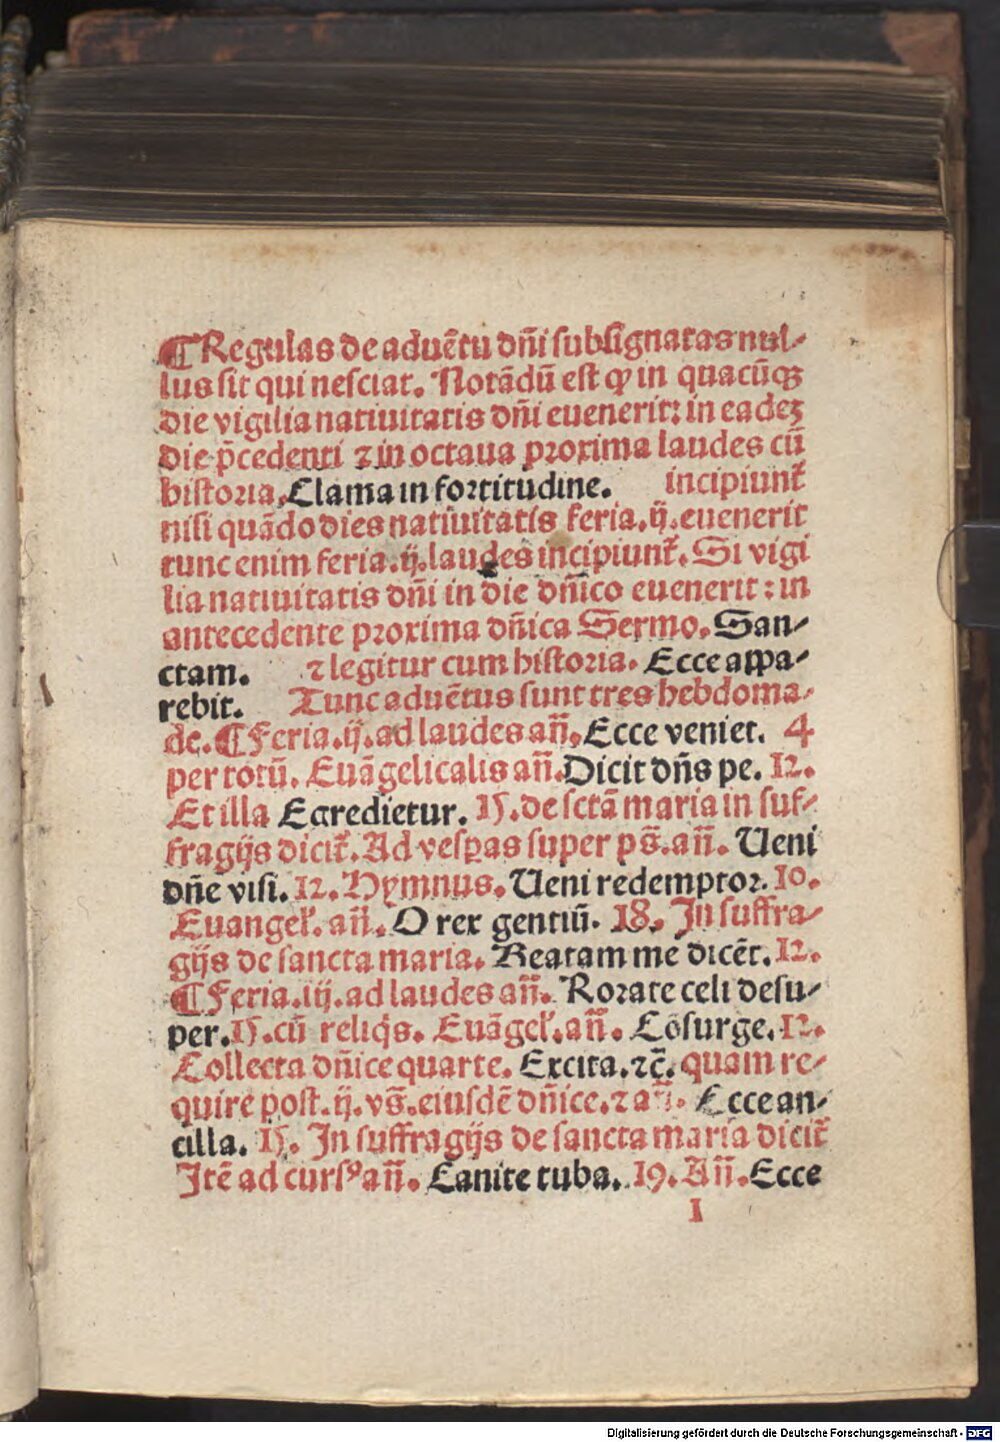 ¶ Regulas de aduētu dn̄i subsignatas nul⸗
lus sit qui nesciat. Notādū est ꝙ in quacūqꝫ
die vigilia natiuitatis dn̄i euenerit: in eadeꝫ
die p̄cedenti ⁊ in octaua proxima laudes cū
historia. Clama in fortitudine. incipiunt᷑
nisi quādo dies natiuitatis feria. ij. euenerit
tunc enim feria. ij. laudes incipiunt᷑. Si vigi
lia natiuitatis dn̄i in die dn̄ico euenerit: in
antecedente proxima dn̄ica Sermo. San⸗
ctam. ⁊ legitur cum historia. Ecce appa⸗
rebit. Tunc aduētus sunt tres hebdoma⸗
de. ¶ Feria. ij. ad laudes an̄. Ecce veniet. 4
per totū. Euāgelicalis an̄. Dicit dn̄s pe. 12.
Et illa Egredietur. 15. de sctā maria in suf⸗
fragijs dicit᷑. Ad vesꝑas super ps̄. an̄. Ueni
dn̄e visi. 12. Hymnus. Ueni redemptor. 10.
Euangel̓. an̄. O rex gentiū. 18. In suffra⸗
gijs de sancta maria. Beatam me dicēt. 12.
¶ Feria. iij. ad laudes an̄. Rorate celi desu⸗
per. 15. cū reliqs. Euāgel̓. an̄. Cōsurge. 12.
Collecta dn̄ice quarte. Excita. ⁊c̄. quam re⸗
quire post. ij. vs̄. eiusdē dn̄ice. ⁊ an̄. Ecce an⸗
cilla. 15. In suffragijs de sancta maria dicit᷑
Itē ad cursꝰ an̄. Canite tuba. 19. An̄. Ecce
I
Digitalisierung gefördert durch die Deutsche Forschungsgemeinschaft - DFG